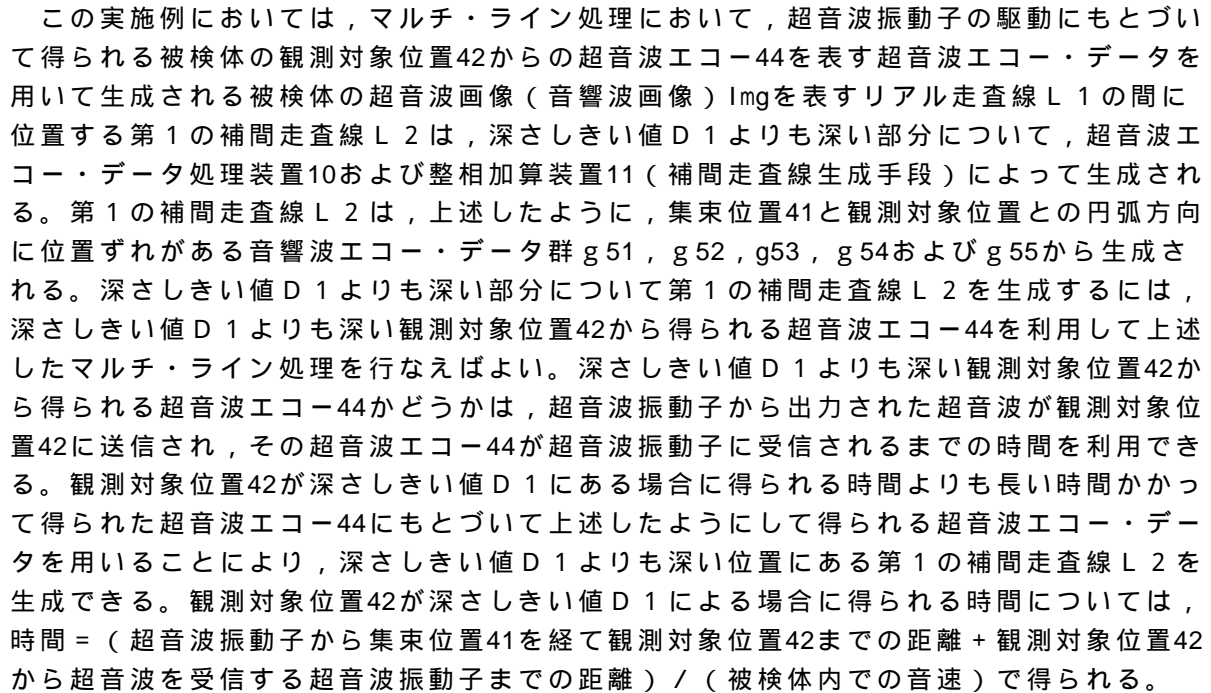 この実施例においては，マルチ・ライン処理において，超音波振動子の駆動にもとづい
て得られる被検体の観測対象位置42からの超音波エコー44を表す超音波エコー・データを
用いて生成される被検体の超音波画像（音響波画像）Imgを表すリアル走査線Ｌ１の間に
位置する第１の補間走査線Ｌ２は，深さしきい値Ｄ１よりも深い部分について，超音波エ
コー・データ処理装置10および整相加算装置11（補間走査線生成手段）によって生成され
る。第１の補間走査線Ｌ２は，上述したように，集束位置41と観測対象位置との円弧方向
に位置ずれがある音響波エコー・データ群ｇ51，ｇ52，g53，ｇ54およびｇ55から生成さ
れる。深さしきい値Ｄ１よりも深い部分について第１の補間走査線Ｌ２を生成するには，
深さしきい値Ｄ１よりも深い観測対象位置42から得られる超音波エコー44を利用して上述
したマルチ・ライン処理を行なえばよい。深さしきい値Ｄ１よりも深い観測対象位置42か
ら得られる超音波エコー44かどうかは，超音波振動子から出力された超音波が観測対象位
置42に送信され，その超音波エコー44が超音波振動子に受信されるまでの時間を利用でき
る。観測対象位置42が深さしきい値Ｄ１にある場合に得られる時間よりも長い時間かかっ
て得られた超音波エコー44にもとづいて上述したようにして得られる超音波エコー・デー
タを用いることにより，深さしきい値Ｄ１よりも深い位置にある第１の補間走査線Ｌ２を
生成できる。観測対象位置42が深さしきい値Ｄ１による場合に得られる時間については，
時間＝（超音波振動子から集束位置41を経て観測対象位置42までの距離＋観測対象位置42
から超音波を受信する超音波振動子までの距離）／（被検体内での音速）で得られる。